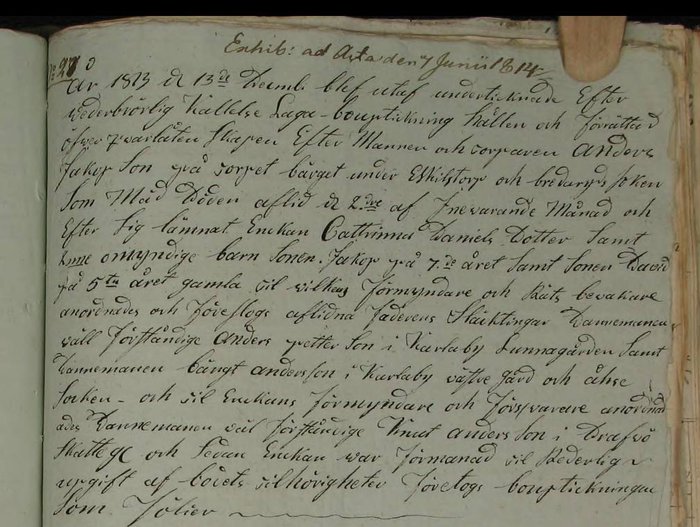 Exhib: ad Acta den 7 Junii 1814
År 1813 d 13de Decemb. blef utaf undertecknade Efter
wederbörlig kallelse Laga bouptekning hållen och förrättad
öfver qvarlåtenskapen Efter Mannen och torparen Anders
Jakop Son på torpet bärget under Eskilstorp och bredaryds soken
Som Med döden aflid d 2dre af Inevarande Månad och
Efter sig lämnat Enckan Cathrinna Daniels Dotter samt
2nne omyndige barn Sonen Jakop på 7de året samt sonen David
på 5te året gamla til vilkas förmyndare och Rätz bevakare
anordnades och föreslogs aflidna faderens Släcktingar Dannemannen
wäll förståndige Anders petter Son i Karlaby Sunnagården samt
Dannemannen bängt andersson i Karlaby västre gård och åhse
Socken - och til Enckans förmyndare och försvarare anordnad
ades Dannemannen wäl förståndige Knut anders Son i Drafvö
Skattegl och Sedan Enckan war förmanad til Rederlig
upgift af boets tilhörigheter företogs bouptekningen
Som följer